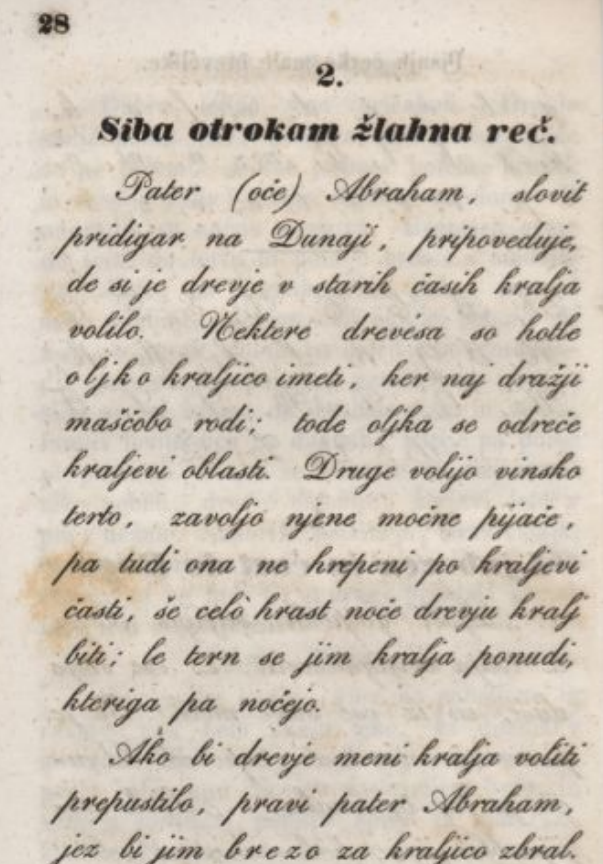 28
2.
Siba otrokam žlahna reč.
Pater (oče) Abraham, slovit
pridigar na Dunaji, pripoveduje,
de si je drevje v starih časih kralja
volilo. Nektere drevésa so hotle
oljko kraljico imeti, ker naj dražji
maščobo rodi; tode oljka se odreče
kraljevi oblasti. Druge volijo vinsko
terto, zavoljo njene močne pijače,
pa tudi ona ne hrepeni po kraljevi
časti, še celò hrast noče drevju kralj
biti; le tern se jim kralja ponudi,
kteriga pa nočejo.
Ako bi drevje meni kralja voliti
prepustilo, pravi pater Abraham,
jez bi jim brezo za kraljico zbral.